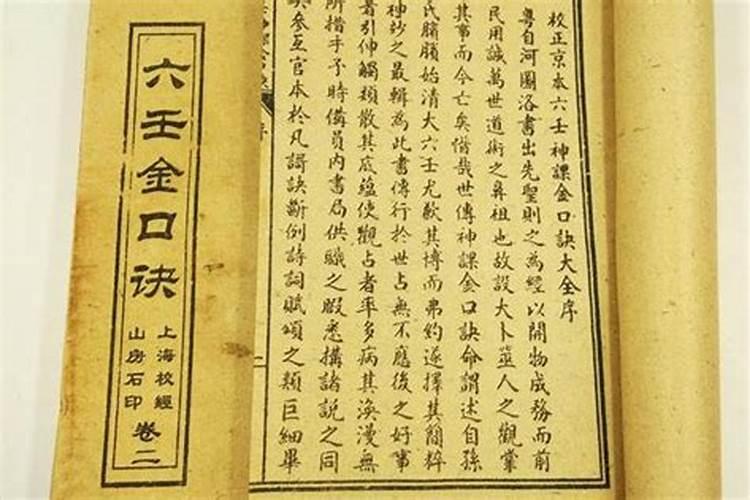 六壬金口诀
上海校經
山房石印
卷二
校正京本六壬神課金口訣大全序
粵自河圖洛書出先聖則之為經以開物成務而前
民用誠萬世道術之鼻祖也故設大卜筮人之觀掌
其事而今亡矣惜哉世傳神課金口訣命謂述自孫
氏臏始清大六壬尤歉其博而弗約遂擇其簡粹
神妙之最輯為此書傳行於世占無不應後之好事
者引伸觸類散其底蘊使觀占者率多病其渙漫無
所措手予時備員內書局供職之暇悉搆諸說之同
異參互官本於凡謌訣斷例詩詞賦頌之類巨細畢